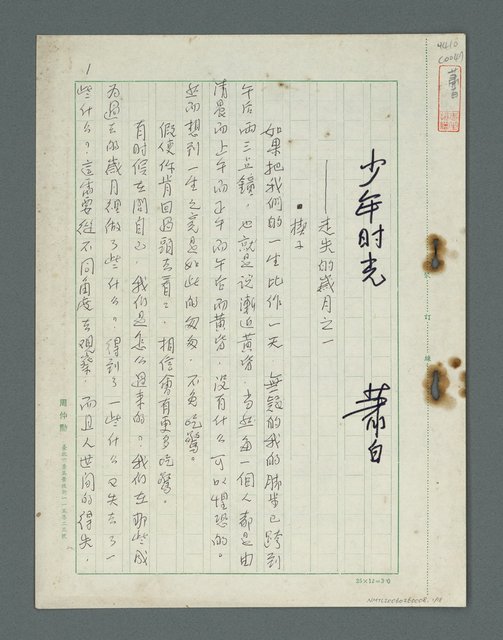 少年时光
蕭白
——走失的歲月之一
▪楔子
如果把我們的一生比作一天 無疑的我的脚步已跨到
午后兩三点鐘，也就是説漸近黃昏，当然每一個人都是由
清晨而上午而正午而午后而黄昏，没有什么可以惶恐的。
然而想到一生之竟是如此的匆匆 不免吃驚。
假使你肯回過頭去看看，相信會有更多吃驚。
有时候在問自己，我們是怎么過来的？我們在那些成
为過去的歲月裡做了些什么？得到了一些什么又失去了一
些什么？這需要從不同角度去观察，而且人世间的得失，
1
周仲勳
訂
線
25×12=30
9410
C0047
蕭白